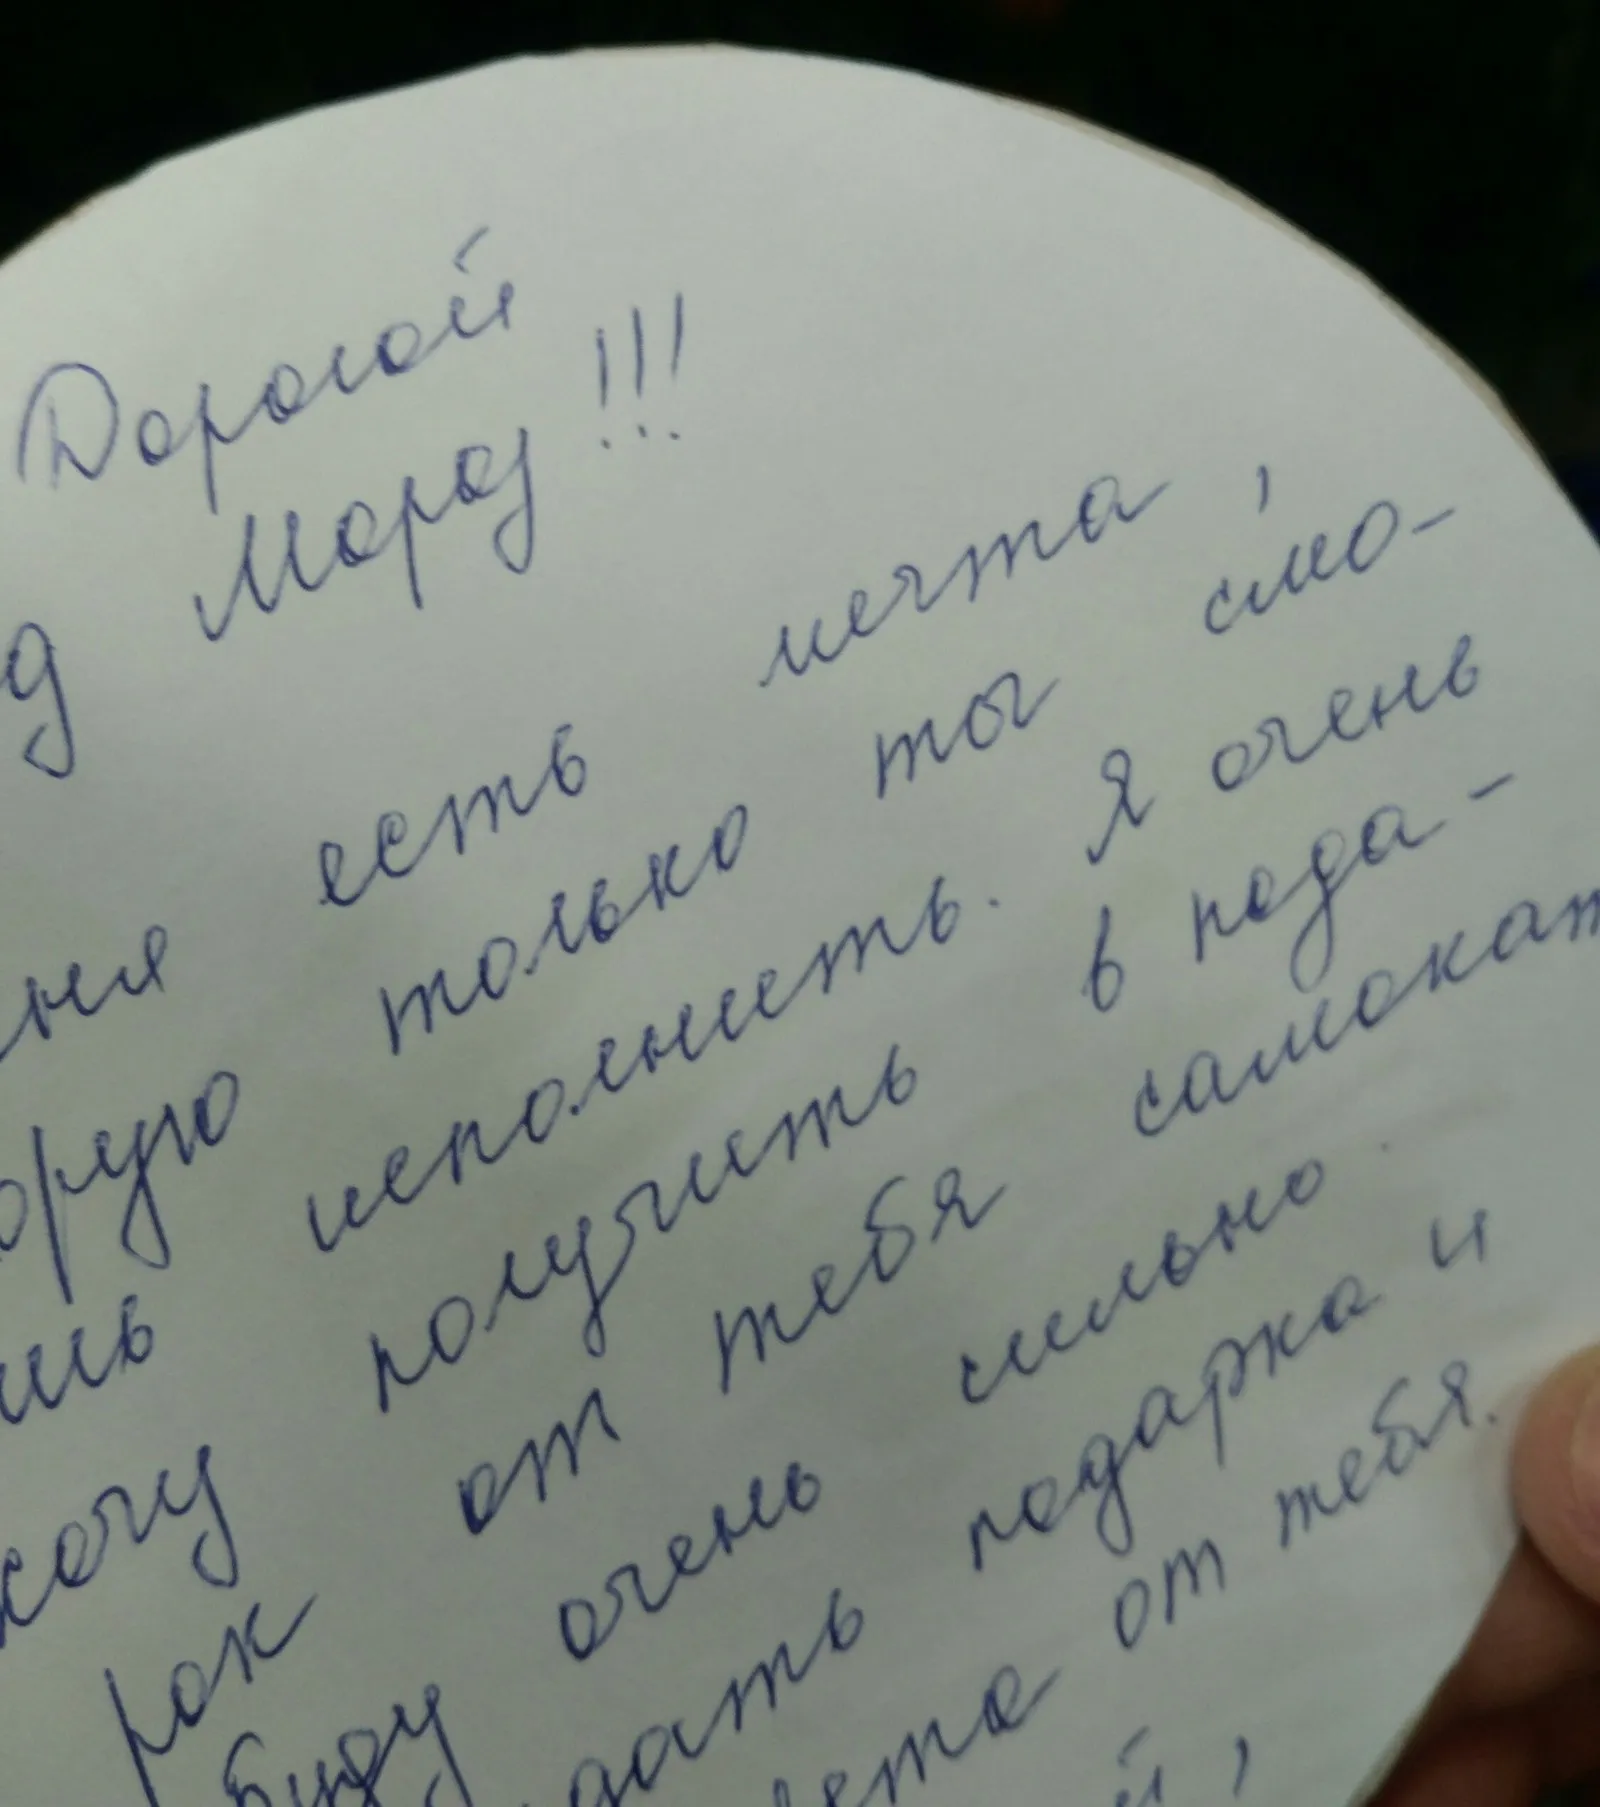 Дорогой
д Мороз!!!
ня есть мечта,
орую только ты смо-
шь исполнить. Я очень
хочу получить в пода-
рок от тебя самокат
Буду очень сильно
дать подарка и
ета от тебя.
й,